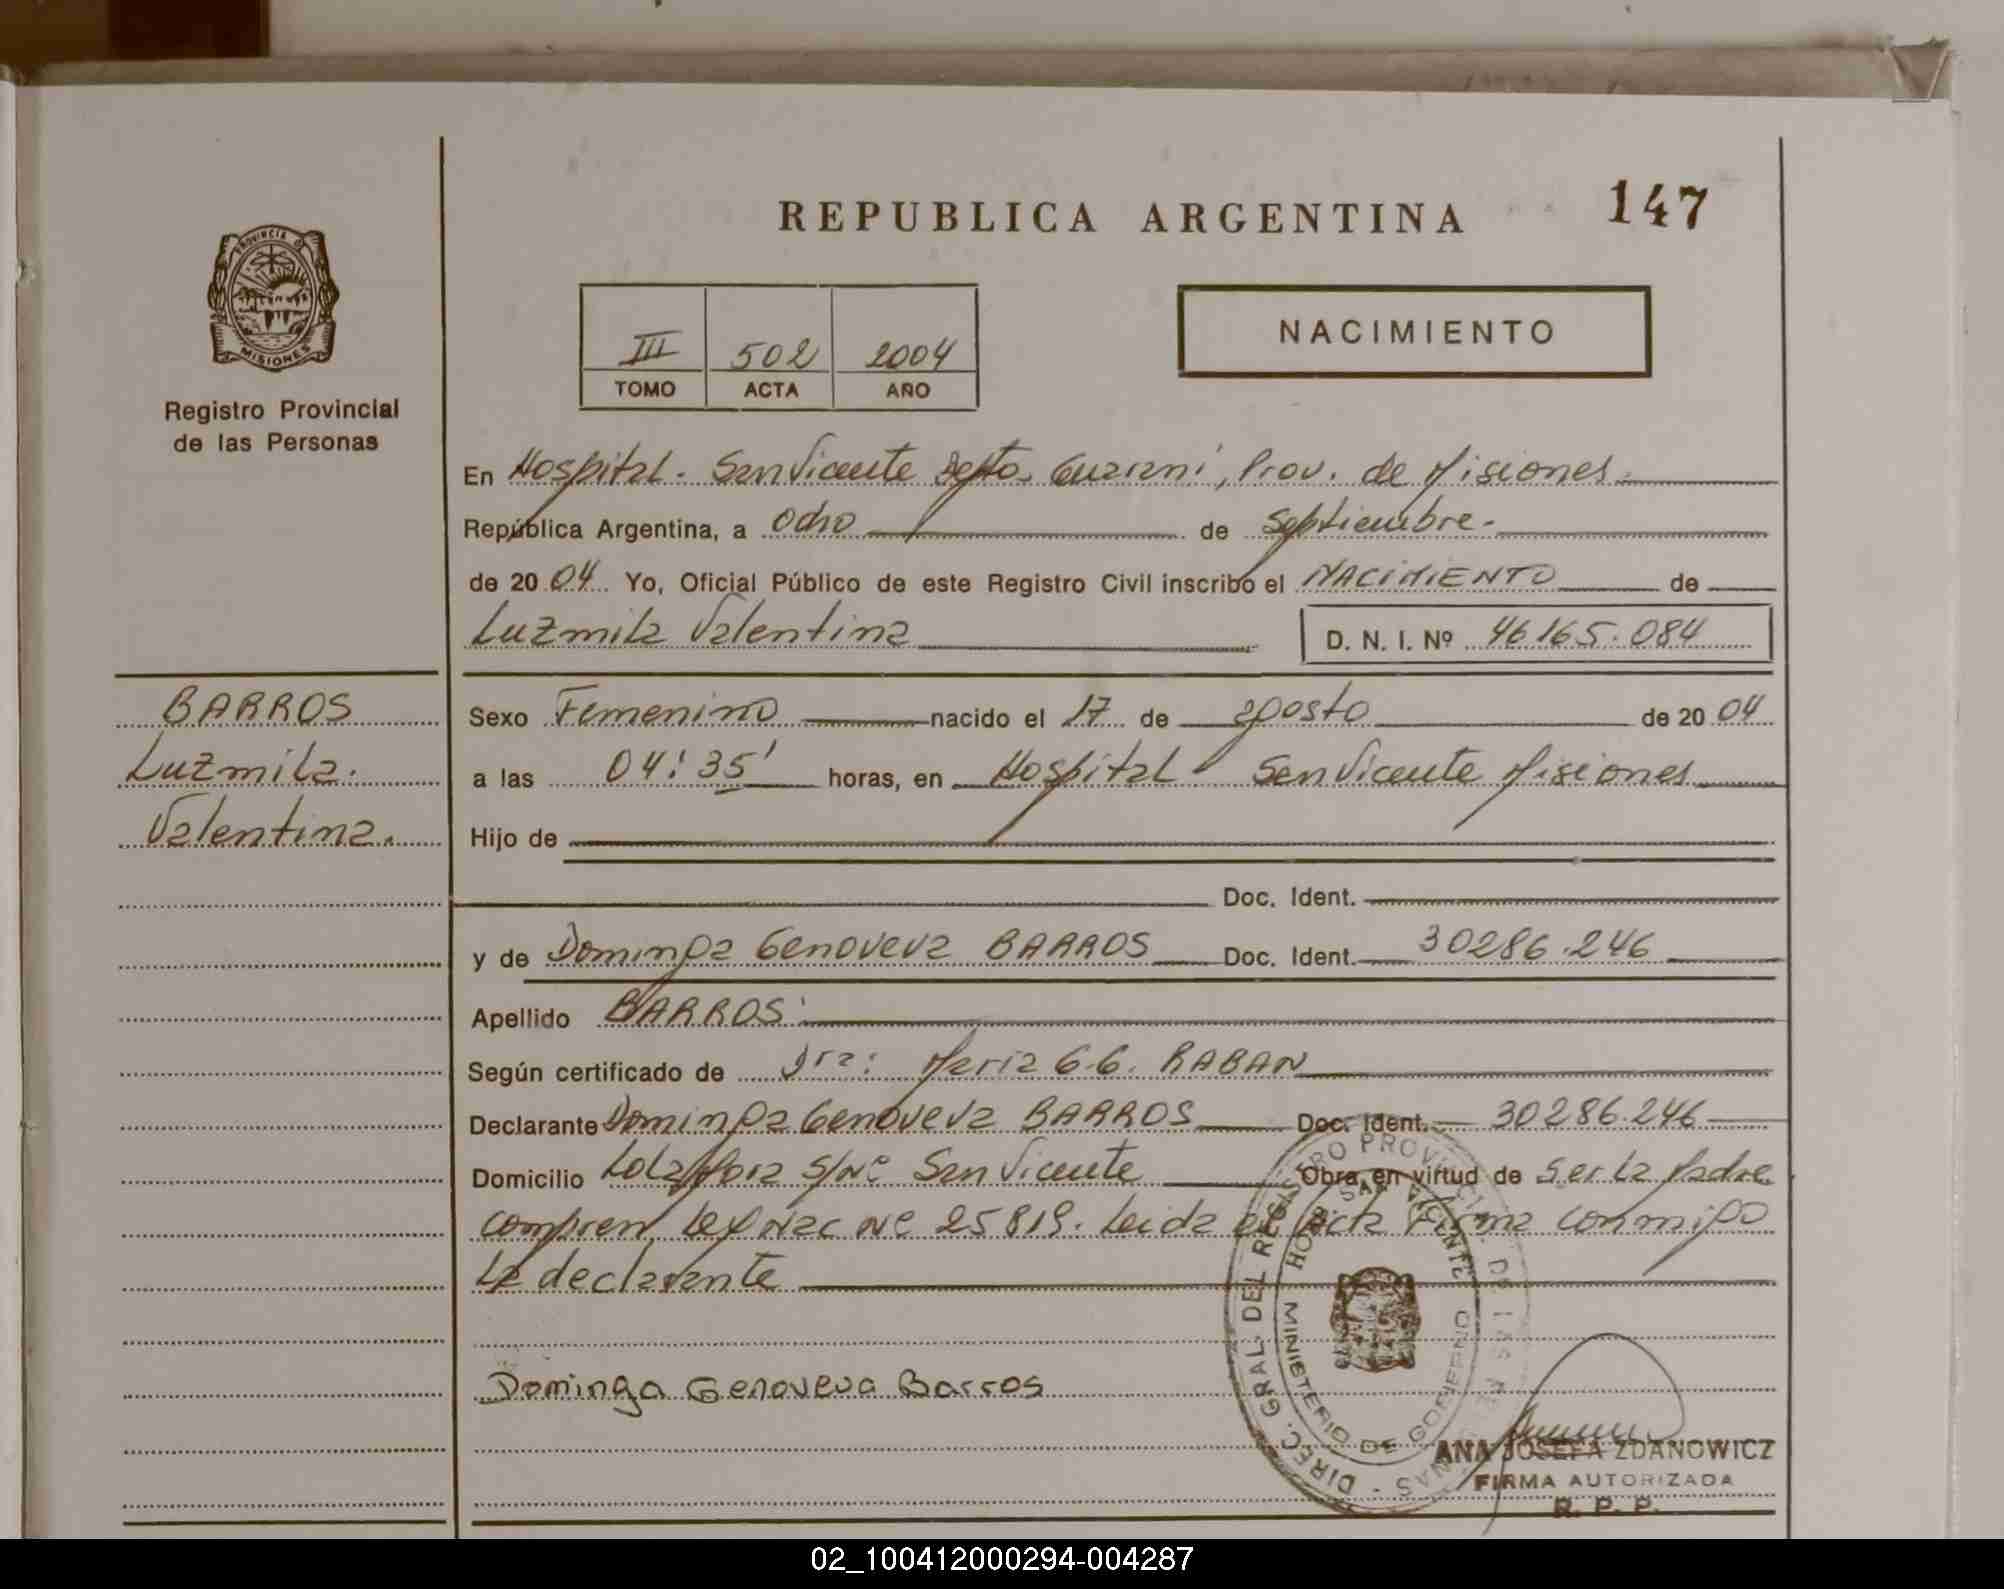 REPUBLICA ARGENTINA
147
PROVINCIA D
MISIONES
Registro Provincial
de las Personas
III 502 2004
TOMO ACTA AÑO
NACIMIENTO
En Hospital - San Vicente Depto. Guarani, Prov. de Misiones.
República Argentina, a Ocho de Septiembre.
de 2004 Yo, Oficial Público de este Registro Civil inscribo el NACIMIENTO de
Luzmila Valentina
D. N. I. Nº 46165.084
BARROS
Luzmila.
Valentina.
Sexo Femenino nacido el 17 de agosto de 2004
a las 04:35' horas, en Hospital San Vicente Misiones
Hijo de
Doc. Ident.
y de Dominga Genoveva BARROS Doc. Ident. 30286.246
Apellido BARROS
Según certificado de Dra: Maria G.G. RABAN
Declarante Dominga Genoveva BARROS Doc. Ident. 30286.246
Domicilio S/Nº San Vicente Obra en virtud de ser la Madre
Ley Nac Nº 25819. Leida el Acta Firma conmigo
La declarante
Dominga Genoveva Barros
DIREC. GRAL. DEL REGISTRO PROVINCIAL DE LAS PERSONAS -
HOSP. SAN VICENTE
MINISTERIO DE GOBIERNO
ANA JOSEFA ZDANOWICZ
FIRMA AUTORIZADA
R. P. P.
02_100412000294-004287